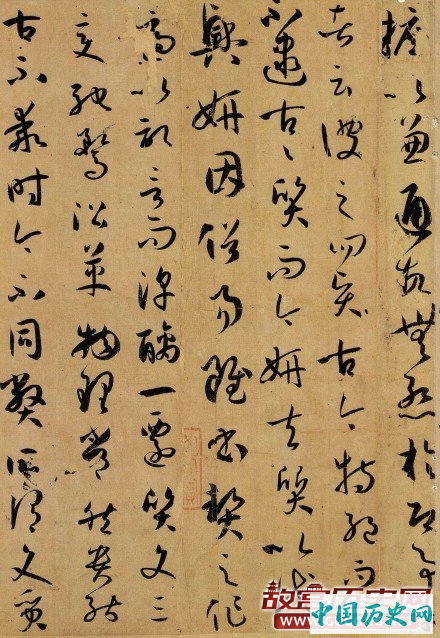 摭以兼通故無慚於即事
者云彼之四賢古今特絕而
不逮古〻質而今妍夫質以代
興妍因俗易雖書契之作
適以記言而淳醨一遷質文三
變馳騖沿革物理常然貴能
古不乖時今不同弊所謂文質
中国历史网